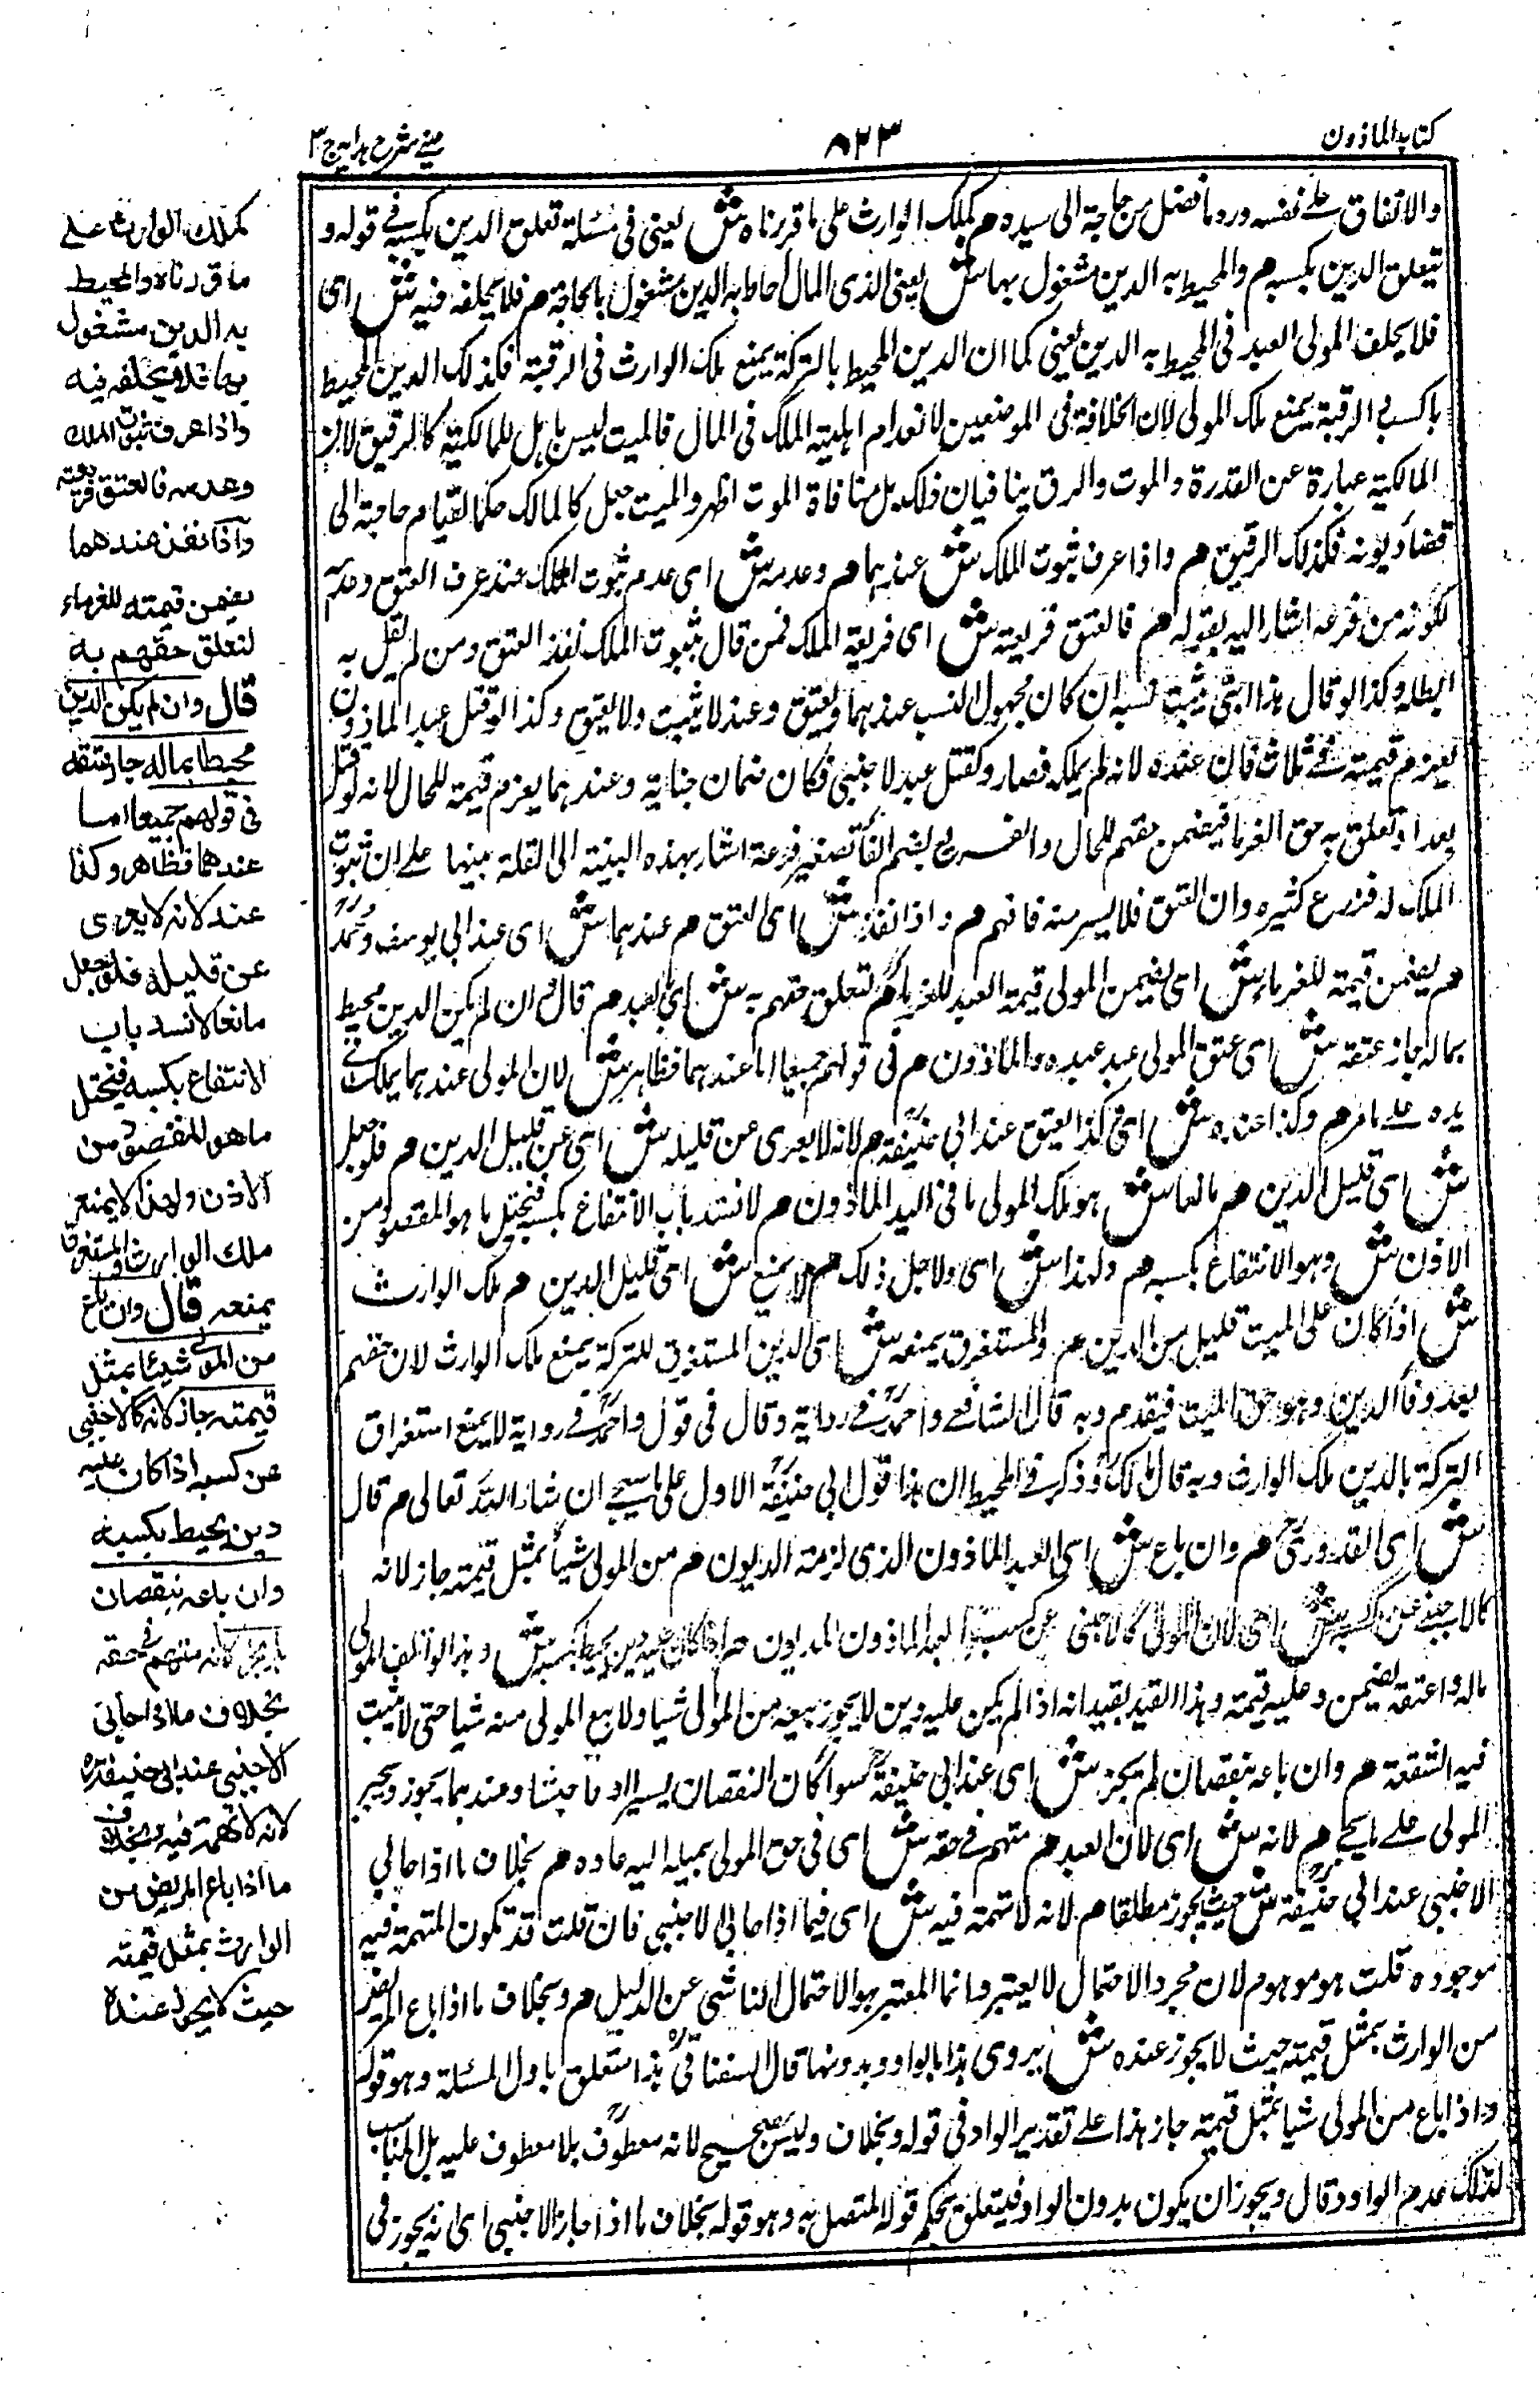 كتاب الماذون
٨٢٣
عيني شرح هدايه ج ٣
والاتفاق على نفسه ورد ما فضل من حاجة الى سيده هم كملك الوارث على ما قررناه ش يعنى فى مسئلة تعلق الدين بكسبه فى قوله و
يتعلق الدين بكسبه هم والمحيط به الدين مشغول بها ش يعنى الذى المال احاط به الدين مشغول بالحاجة هم فلا يخلفه فيه ش اى
فلا يخلف المولى العبد فى المحيط به الدين يعنى كما ان الدين المحيط بالتركة يمنع ملك الوارث فى الرقبة فكذلك الدين المحيط
بالكسب الرقبة يمنع ملك المولى لان الخلافة فى الموضعين لانعدام اهلية الملك فى المال فالميت ليس باهل للمالكية كالرقيق لان
المالكية عبارة عن القدرة والموت والرق ينافيان ذلك بل منافاة الموت اظهر والميت جعل كالمالك حكما لقيام حاجته الى
قضاء ديونه فكذلك الرقيق هم واذا عرف ثبوت الملك ش عندهما هم وعدمه ش اى عدم ثبوت الملك عنده عرف العتق وعدمه
لكونه من فرعه اشار اليه بقوله هم فالعتق فريعته ش اى فريعة الملك فمن قال بثبوت الملك نفذ العتق ومن لم يقل به
ابطله وكذا لو قال هذا ابنى يثبت نسبه ان كان مجهول النسب عندهما ويعتق وعنده لا يثبت ولا يعتق وكذا لو قتل عبد الماذون
يغرم قيمته فى ثلاث سنين عنده لانه لم يملكه فصار كقتل عبد لاجنبى فكان ضمان جناية وعندهما يغرم قيمته للحال لانه لو قتل
بعد ان تعلق به حق الغرما فيضمن حقهم للحال والفريع بضم الفا تصغير فرعة اشار بهذه البنية الى القلة منبها على ان ثبوت
الملك له فروع كثيره وان العتق فلا يسير منه فافهم هم واذا نفذ ش اى العتق هم عندهما ش اى عند ابى يوسف ومحمد
هم يضمن قيمته للغرماء ش اى يضمن المولى قيمة العبد للغرماء هم لتعلق حقهم به ش اى بالعبد هم قال وان لم يكن الدين محيطا
بماله جاز عتقه ش اى عتق المولى عبد عبده والماذون هم فى قولهم جميعا اما عندهما فظاهر ش لان المولى عندهما يملك ما فى
يده على ما مر هم وكذا عنده ش اى وكذا يعتق عند ابى حنيفة هم لانه لا يعرى عن قليله ش اى عن قليل الدين هم فلو جعل
ش اى قليل الدين هم مانعا ش هو ملك المولى ما فى اليد الماذون هم لانسد باب الانتفاع بكسبه فيختل ما هو المقصود من
الاذن ش وهو الانتفاع بكسبه هم ولهذا ش اى ولاجل ذلك هم لا يمنع ش اى قليل الدين هم ملك الوارث
ش اذا كان على الميت قليل من الدين هم والمستغرق يمنعه ش اى الدين المستغرق للتركة يمنع ملك الوارث لان حقهم
بعد وفاء الدين وهو حق الميت فيقدم وبه قال الشافعى واحمد فى رواية وقال فى قول واحمد فى رواية لا يمنع استغراق
التركة بالدين ملك الوارث وبه قال مالك وذكر فى المحيط ان هذا قول ابى حنيفة الاول على ما سيجئ ان شاء الله تعالى هم قال
ش اى القدورى هم وان باع ش اى العبد الماذون الذى لزمته الديون هم من المولى شيأ بمثل قيمته جاز لانه
كالاجنبى عن كسبه ش اى لان المولى كالاجنبى عن كسب العبد الماذون المديون هم اذا كان عليه دين يحيط بكسبه ش ولهذا لو اتلف المولى
ماله واعتقه يضمن وعليه قيمته وهذا القيد يفيد انه اذا لم يكن عليه دين لا يجوز بيعه من المولى شيا ولا بيع المولى منه شيا حتى لا يثبت
فيه الشفعة هم وان باعه بنقصان لم يجز ش اى عند ابى حنيفة سوا كان النقصان يسيرا او فاحشا وعندهما يجوز ويخير
المولى على ما يجئ هم لانه ش اى لان العبد هم متهم فى حقه ش اى فى حق المولى بميله اليه عاده هم بخلاف ما اذا حابى
الاجنبى عند ابى حنيفة ش حيث يجوز مطلقا هم لانه لا تهمة فيه ش اى فيما اذا حابى الاجنبى فان قلت قد تكون التهمة فيه
موجوده قلت هو موهوم لان مجرد الاحتمال لا يعتبر وانما المعتبر هو الاحتمال الناشى عن الدليل هم وبخلاف ما اذا باع المريض
من الوارث بمثل قيمته حيث لا يجوز عنده ش يروى هذا بالواو وبدونها قال السغناقى هذا متعلق باول المسئلة وهو قوله
واذا باع من المولى شيا بمثل قيمته جاز هذا على تقدير الواو فى قوله وبخلاف وليس بصحيح لانه معطوف بلا معطوف عليه بل المناسب
لذلك عدم الواو وقال ويجوز ان يكون بدون الواو فيتعلق بحكم قوله المتصل به وهو قوله بخلاف ما اذا حابى الاجنبى اى انه يجوز فى
كملك الوارث على
ما قررناه والمحيط
به الدين مشغول
بها فلا يخلفه فيه
واذا عرف ثبوت الملك
وعدمه فالعتق فريعته
واذا نفذ عندهما
يضمن قيمته للغرماء
لتعلق حقهم به
قال وان لم يكن الدين
محيطا بماله جاز عتقه
فى قولهم جميعا اما
عندهما فظاهر وكذا
عنده لانه لا يعرى
عن قليله فلو جعل
مانعا لانسد باب
الانتفاع بكسبه فيختل
ما هو المقصود من
الاذن ولهذا لا يمنع
ملك الوارث والمستغرق
يمنعه قال وان باع
من المولى شيئا بمثل
قيمته جاز لانه كالاجنبى
عن كسبه اذا كان عليه
دين يحيط بكسبه
وان باعه بنقصان
لم يجز لانه متهم فى حقه
بخلاف ما اذا حابى
الاجنبى عند ابى حنيفة ره
لانه لا تهمة فيه وبخلاف
ما اذا باع المريض من
الوارث بمثل قيمته
حيث لا يجوز عنده